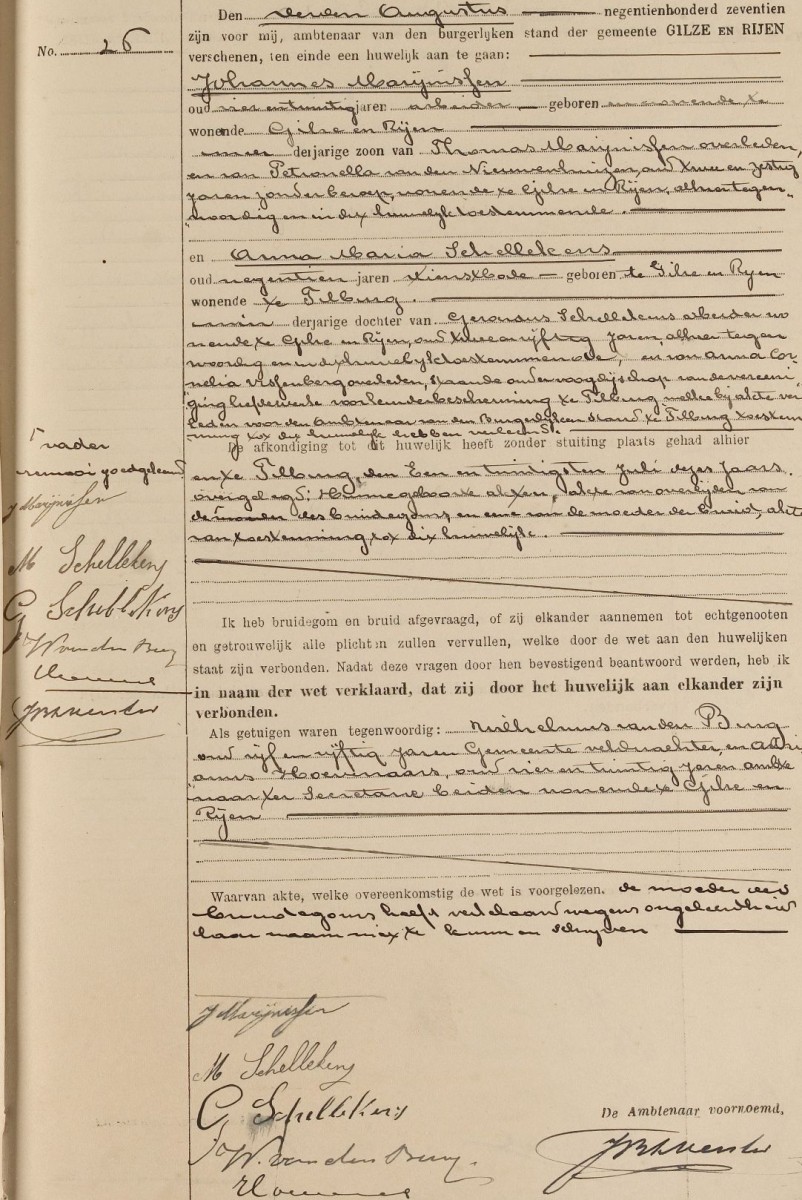 No. 26
Den derden Augustus negentienhonderd zeventien
zijn voor mij, ambtenaar van den burgerlijken stand der gemeente GILZE EN RIJEN
verschenen, ten einde een huwelijk aan te gaan:
Johannes Marijnissen
oud vier en twintig jaren arbeider geboren en wonende te
wonende Gilze en Rijen
meer derjarige zoon van Thomas Marijnissen overleden,
en van Petronella van den Nieuwenhuizen, oud twee en zestig
jaren zonder beroep, wonende te Gilze en Rijen, alhier tegen„
„woordig en in dit huwelijk toestemmende.
en Anna Maria Schellekens
oud negentien jaren dienstbode geboren te Gilze en Rijen
wonende te Tilburg.
min derjarige dochter van Gerardus Schellekens arbeider wo
nende te Gilze en Rijen, oud twee en vijftig jaren, alhier tegen
woordig en in dit huwelijk toestemmende, en van Anna Cor
nelia overleden, staande onder voogdijschap van de vereeni
ging liefdewerk voor kinderbescherming te Tilburg welke bij akte ver
leden voor den Ambtenaar van den Burgerlijken Stand te Tilburg toestem
ming tot dit huwelijk hebben verleend.
De afkondiging tot dit huwelijk heeft zonder stuiting plaats gehad alhier
en te Tilburg, den Een en twintigsten Juli dezes jaars.
overgelegd: Hunne geboorte akten, akte van overlijden van
den moeder des bruidegoms, en eene van de moeder der bruid, akte
van toestemming tot dit huwelijk.
Γ vader
renvooi goedgekeurd
J Marijnissen
M Schellekens
G Schellekens
W van den Burg
Ik heb bruidegom en bruid afgevraagd, of zij elkander aannemen tot echtgenooten
en getrouwelijk alle plichten zullen vervullen, welke door de wet aan den huwelijken
staat zijn verbonden. Nadat deze vragen door hen bevestigend beantwoord werden, heb ik
in naam der wet verklaard, dat zij door het huwelijk aan elkander zijn
verbonden.
Als getuigen waren tegenwoordig: Wilhelmus van den Burg
oud vijf en vijftig jaren Gemeente veldwachter, en Adri
anus oud vier en twintig jaren ambte
„naar ter Secretarie beiden wonende te Gilze en
Rijen
Waarvan akte, welke overeenkomstig de wet is voorgelezen. de moeder des
bruidegoms heeft verklaard wegens ongeleerdheid
haar naam niet te kunnen schrijven
J Marijnissen
M Schellekens
G Schellekens
W. van den Burg.
De Ambtenaar voornoemd,